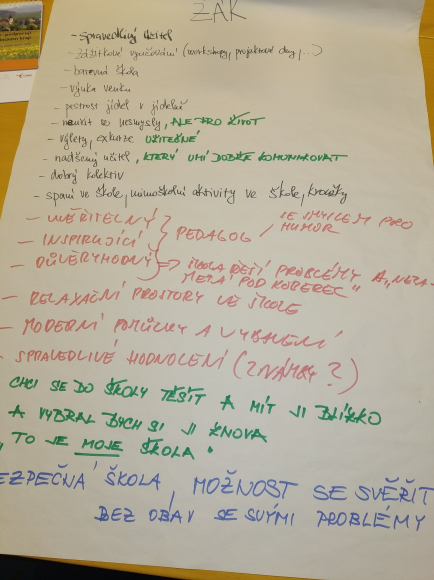 ŽÁK
- spravedlivý učitel
- zážitkové vyučování (workshopy, projektové dny,...)
- barevná škola
- výuka venku
- pestrost jídel v jídelně
- neučit se nesmysly, ALE PRO ŽIVOT
- výlety, exkurze UŽITEČNÉ
- nadšený učitel, KTERÝ UMÍ DOBŘE KOMUNIKOVAT
- dobrý kolektiv
- spaní ve škole, mimoškolní aktivity ve škole, kroužky
- UVĚŘITELNÝ
- INSPIRUJÍCÍ } PEDAGOG / SE SMYSLEM PRO HUMOR
- DŮVĚRYHODNÝ => ŠKOLA ŘEŠÍ PROBLÉMY A „NEZA-
METÁ POD KOBEREC"
- RELAXAČNÍ PROSTORY VE ŠKOLE
- MODERNÍ POMŮCKY A VYBAVENÍ
- SPRAVEDLIVÉ HODNOCENÍ (ZNÁMKY?)
CHCI SE DO ŠKOLY TĚŠIT A MÍT JI BLÍZKO
A VYBRAL BYCH SI JI ZNOVA
„TO JE MOJE ŠKOLA"
BEZPEČNÁ ŠKOLA, MOŽNOST SE SVĚŘIT
BEZ OBAV SE SVÝMI PROBLÉMY